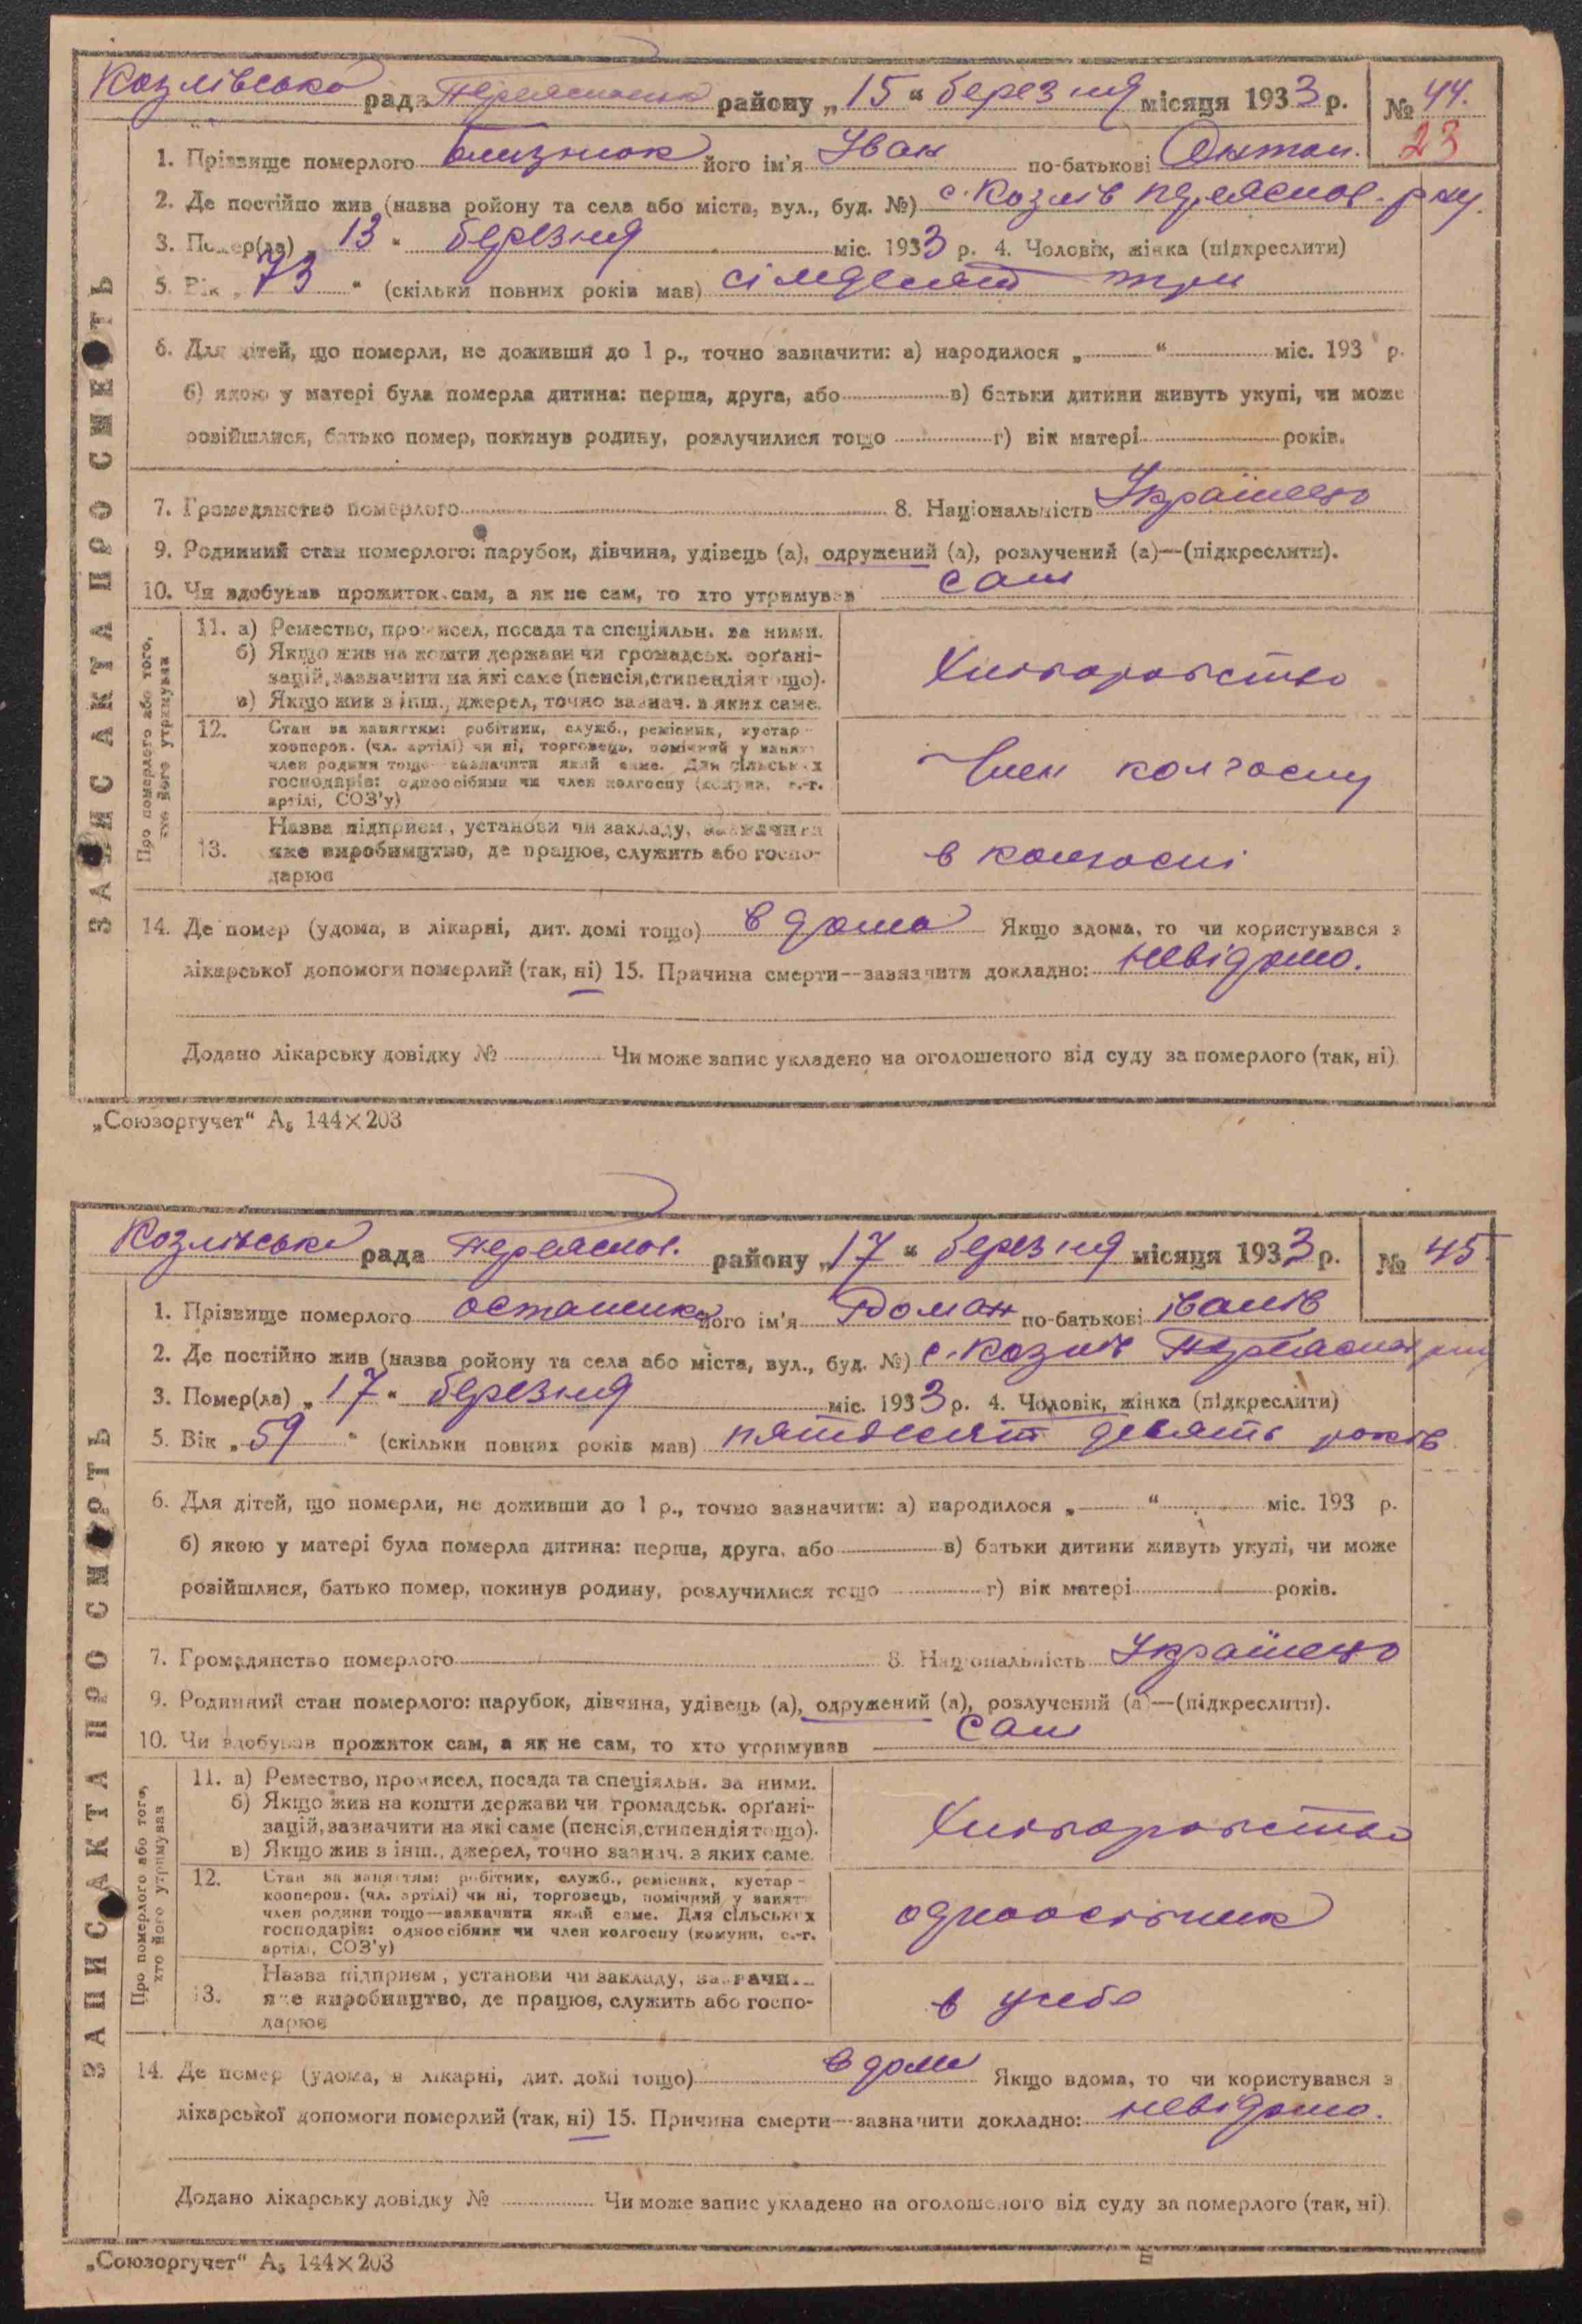 Козлівська рада Переяславськ району „15“ березня місяця 1933 р. № 44.
23
1. Прізвище померлого Близнюк його ім'я Іван по-батькові Антон.
2. Де постійно жив (назва району та села або міста, вул., буд. №) с. Козлів Переяслов. р-ну.
3. Помер(ла) „13“ березня міс. 1933 р. 4. Чоловік, жінка (підкреслити)
5. Вік „73“ (скільки повних років мав) сімдесят три
6. Для дітей, що померли, не доживши до 1 р., точно зазначити: а) народилося „ “ міс. 193 р.
б) якою у матері була померла дитина: перша, друга, або в) батьки дитини живуть укупі, чи може
розійшлися, батько помер, покинув родину, розлучилися тощо г) вік матері років.
7. Громадянство померлого 8. Національність Українець
9. Родинний стан померлого: парубок, дівчина, удівець (а), одружений (а), розлучений (а)—(підкреслити).
10. Чи здобував прожиток сам, а як не сам, то хто утримував сам
Про померлого або того, хто його утримував
11. а) Ремество, промисел, посада та спеціяльн. за ними.
б) Якщо жив на кошти держави чи громадськ. орґані-
зацій, зазначити на які саме (пенсія, стипендія тощо).
в) Якщо жив з інш., джерел, точно зазнач. з яких саме.
Хліборобство
12. Стан за заняттям: робітник, служб., ремісник, кустар-
кооперов. (чл. артілі) чи ні, торговець, помічний у занят.
член родини тощо—зазначити який саме. Для сільських
господарів: одноосібник чи член колгоспу (комуни, с.-г.
артілі, СОЗ'у)
Член колгоспу
13. Назва підприєм., установи чи закладу, зазначити
яке виробництво, де працює, служить або госпо-
дарює
в колгоспі
14. Де помер (удома, в лікарні, дит. домі тощо) в дома Якщо вдома, то чи користувався з
лікарської допомоги померлий (так, ні) 15. Причина смерти—зазначити докладно: невідомо.
Додано лікарську довідку № Чи може запис укладено на оголошеного від суду за померлого (так, ні).
ЗАПИС АКТА ПРО СМЕРТЬ
„Союзоргучет“ А₅ 144×203
Козлівська рада Переяслов. району „17“ березня місяця 1933 р. № 45.
1. Прізвище померлого Остапенко його ім'я Роман по-батькові Іванів
2. Де постійно жив (назва району та села або міста, вул., буд. №) с. Козлів
3. Помер(ла) „17“ березня міс. 1933 р. 4. Чоловік, жінка (підкреслити)
5. Вік „59“ (скільки повних років мав) пятдесят девять років
6. Для дітей, що померли, не доживши до 1 р., точно зазначити: а) народилося „ “ міс. 193 р.
б) якою у матері була померла дитина: перша, друга, або в) батьки дитини живуть укупі, чи може
розійшлися, батько помер, покинув родину, розлучилися тощо г) вік матері років.
7. Громадянство померлого 8. Національність Українець
9. Родинний стан померлого: парубок, дівчина, удівець (а), одружений (а), розлучений (а)—(підкреслити).
10. Чи здобував прожиток сам, а як не сам, то хто утримував сам
Про померлого або того, хто його утримував
11. а) Ремество, промисел, посада та спеціяльн. за ними.
б) Якщо жив на кошти держави чи громадськ. орґані-
зацій, зазначити на які саме (пенсія, стипендія тощо).
в) Якщо жив з інш., джерел, точно зазнач. з яких саме.
Хліборобство
12. Стан за заняттям: робітник, служб., ремісник, кустар-
кооперов. (чл. артілі) чи ні, торговець, помічний у занят.
член родини тощо—зазначити який саме. Для сільських
господарів: одноосібник чи член колгоспу (комуни, с.-г.
артілі, СОЗ'у)
одноосібник
13. Назва підприєм., установи чи закладу, зазначити
яке виробництво, де працює, служить або госпо-
дарює
в себе
14. Де помер (удома, в лікарні, дит. домі тощо) в дома Якщо вдома, то чи користувався з
лікарської допомоги померлий (так, ні) 15. Причина смерти—зазначити докладно: невідомо.
Додано лікарську довідку № Чи може запис укладено на оголошеного від суду за померлого (так, ні).
ЗАПИС АКТА ПРО СМЕРТЬ
„Союзоргучет“ А₅ 144×203